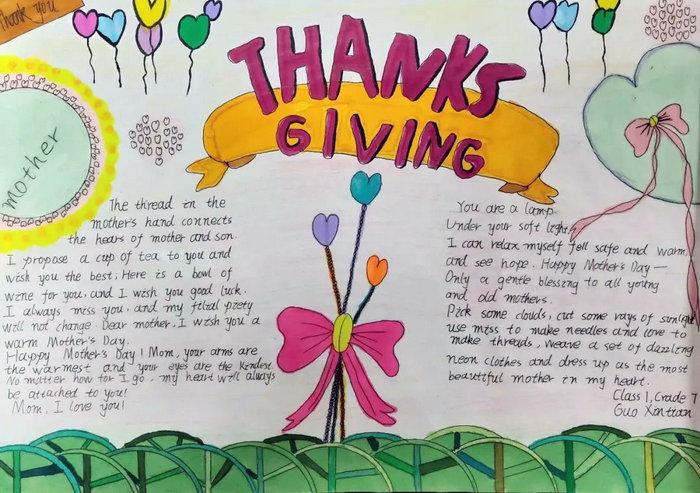 Thank you
THANKS
GIVING
mother
The thread in the
mother's hand connects
the hears of mother and son.
I propose a cup of tea to you and
wish you the best; Here is a bowl of
wine for you, and I wish you good luck.
I always miss you, and my filial piety
will not change. Dear mother, I wish you a
warm Mother's Day.
Happy Mother's Day! Mom, your arms are
the warmest and your eyes are the kindest.
No matter how for I go, my heart will always
be attached to you!
Mom, I love you!
You are a lamp.
Under your soft light,
I can relax myself fell safe and warm,
and see hope. Happy Mother's Day—
Only a gentle blessing to all young
and old mothers.
Pick some clouds, cut some rays of sunlight
use miss to make needles and love to
make threads, weave a set of dazzling
neon clothes and dress up as the most
beautiful mother in my heart.
Class 1, Grade 7
Guo Xintian